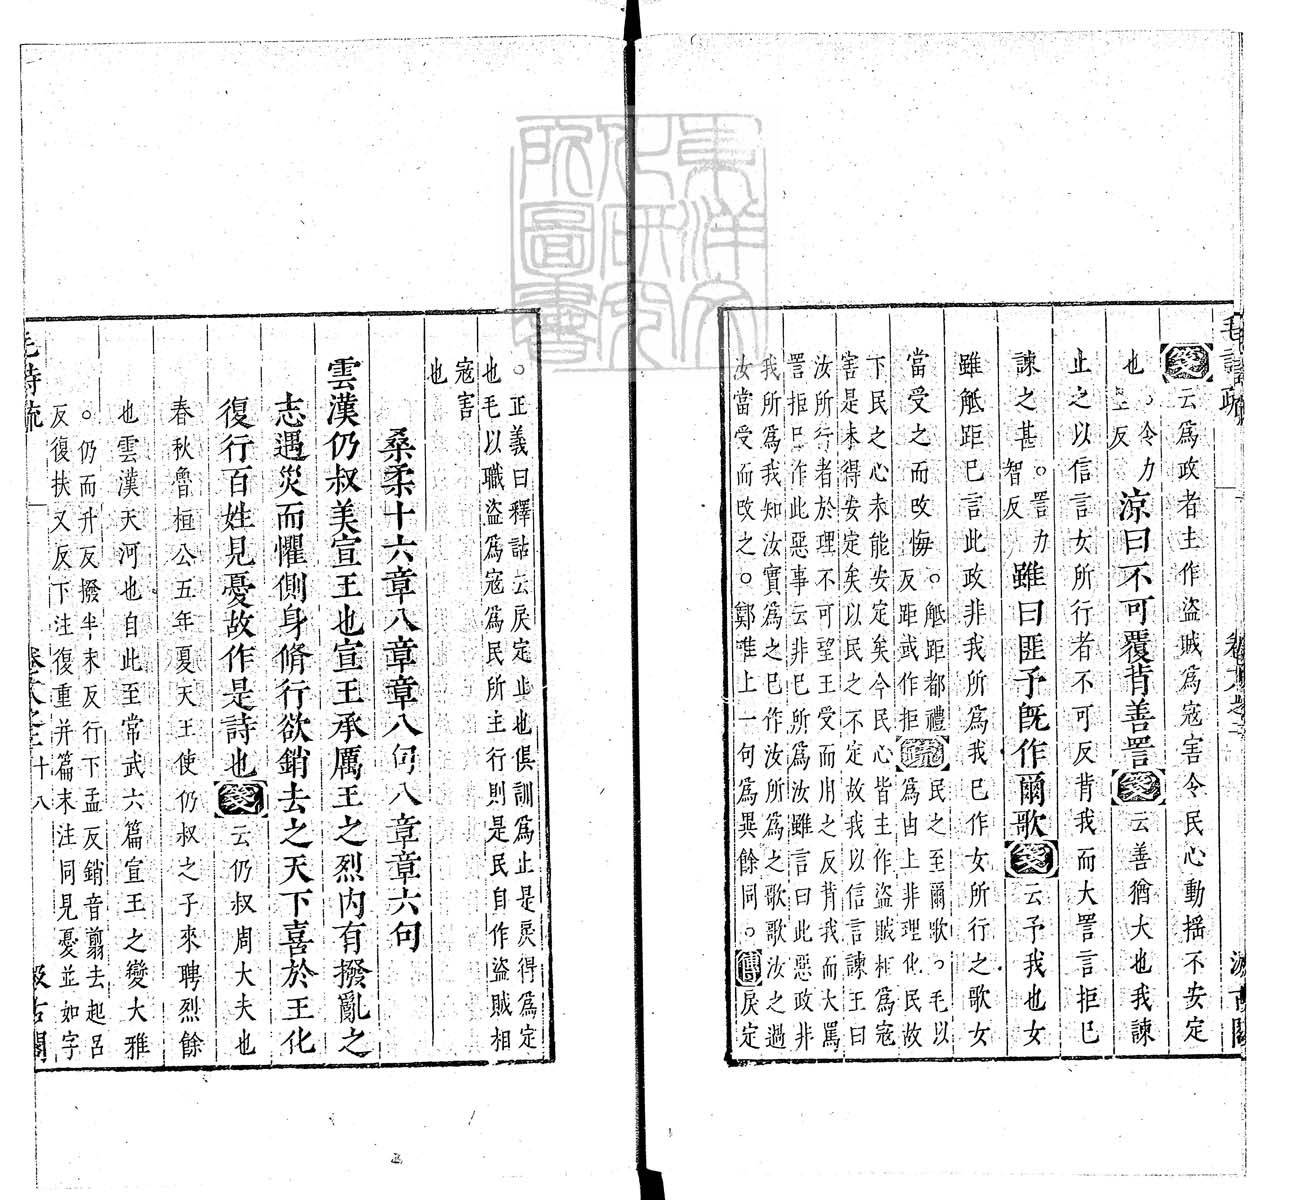 毛詩疏
箋云爲政者主作盜賊爲寇害令民心動搖不安定
也。令力呈反涼曰不可覆背善詈箋云善猶大也我諫
止之以信言女所行者不可反背我而大詈言拒已
諫之甚。詈力智反雖曰匪予旣作爾歌箋云予我也女
雖觝距已言此政非我所爲我已作女所行之歌女
當受之而改悔。觝距都禮反距或作拒疏民之至爾歌。毛以爲由上非理化民故
下民之心未能安定矣今民心皆主作盜賊相爲寇
害是未得安定矣以民之不定故我以信言諫王曰
汝所行者於理不可望王受而用之反背我而大罵
詈拒已作此惡事云非已所爲汝雖言曰此惡政非
我所爲我知汝實爲之已作汝所爲之歌歌汝之過
汝當受而改之。鄭唯上一句爲異餘同。傳戾定
。正義曰釋詁云戾定止也俱訓爲止是戾得爲定
也毛以職盜爲寇爲民所主行則是民自作盜賊相
寇害
也
桑柔十六章八章章八句八章章六句
雲漢仍叔美宣王也宣王承厲王之烈內有撥亂之
志遇災而懼側身脩行欲銷去之天下喜於王化
復行百姓見憂故作是詩也箋云仍叔周大夫也
春秋魯桓公五年夏天王使仍叔之子來聘烈餘
也雲漢天河也自此至常武六篇宣王之變大雅
。仍而升反撥半末反行下孟反銷音翦去起呂
反復扶又反下注復重并篇末注同見憂並如字
毛詩疏 卷十八之二 十八 汲古閣